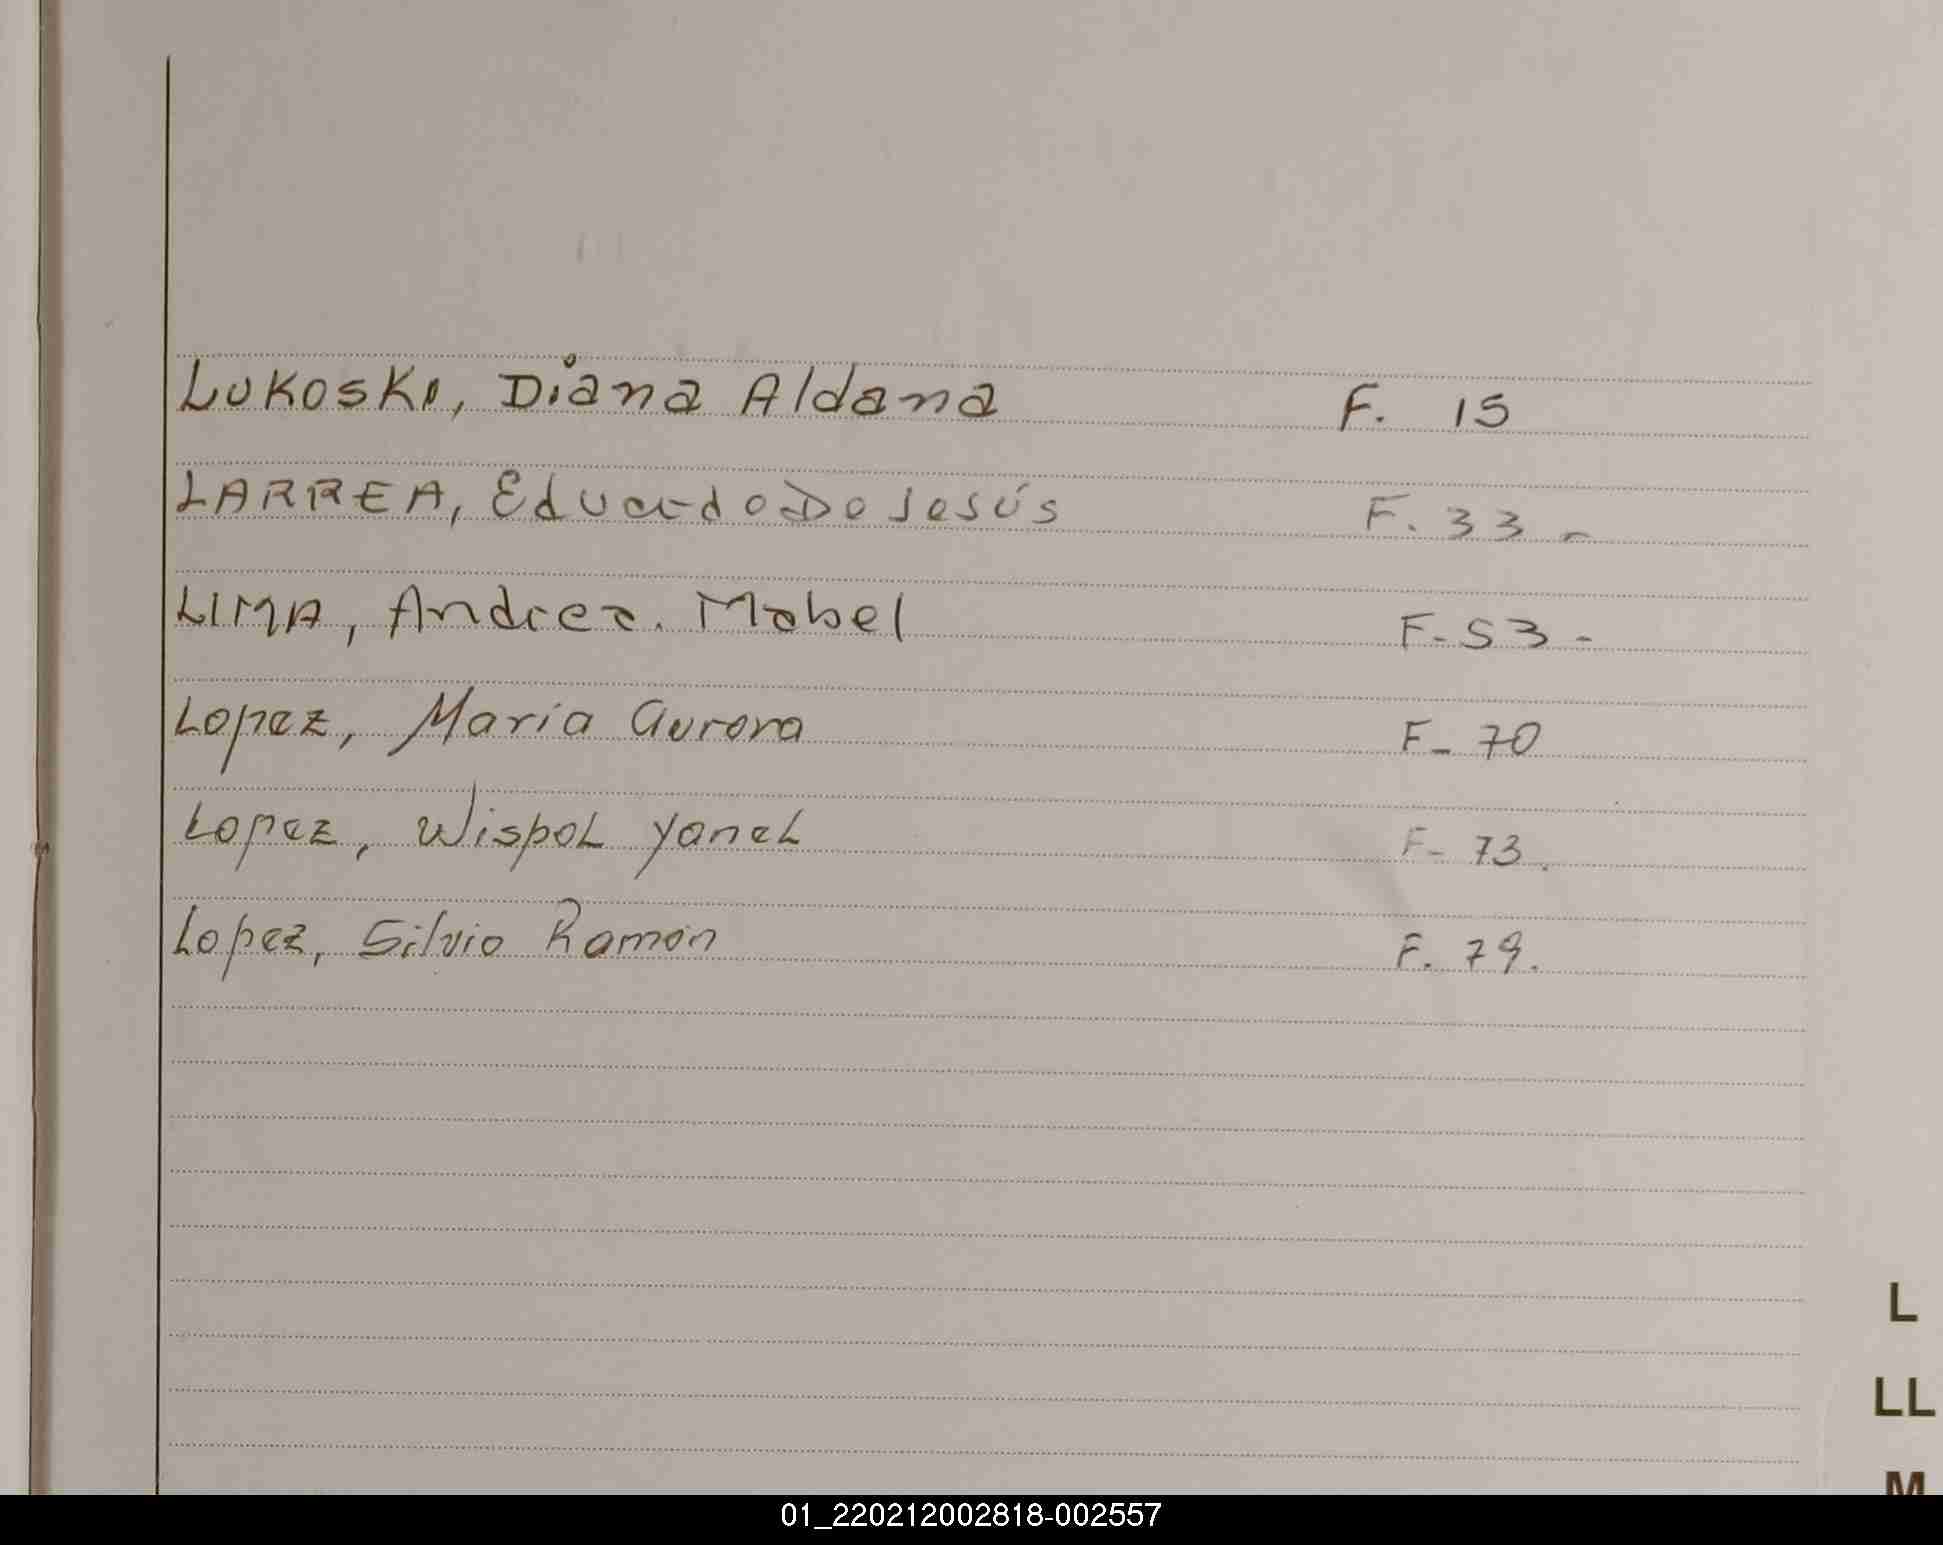 LUKOSKI, Diana Aldana F. 15
LARREA, Eduardo De Jesús F. 33 -
LIMA, Andrea. Mabel F- 53 -
Lopez, Maria Aurora F- 70
Lopez, Wispol Yanel F- 73.
Lopez, Silvio Ramón F. 79.
L
LL
M
01_220212002818-002557